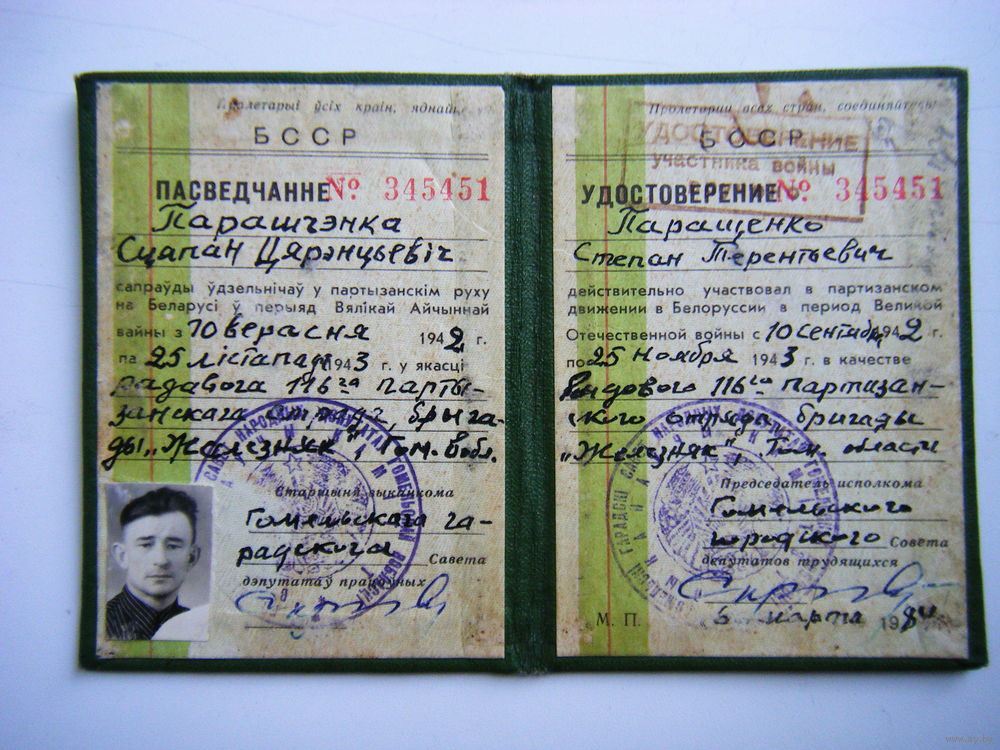 Пролетарыі ўсіх краін, яднай
БССР
ПАСВЕДЧАННЕ № 345451
Парашчэнка
Сцапан Цярэнцьевіч
сапраўды ўдзельнічаў у партызанскім руху
на Беларусі ў перыяд Вялікай Айчыннай
вайны з 10 верасня 1942 г.
па 25 лістапад 1943 г. у якасці
радавога 116га парты-
занскага атрада, брыга-
ды „Железняк", Гом. вобл.
Старшыня выканкома
Гомельскага га-
радскога Савета
дэпутатаў працоўных
Пролетарии всех стран, соединяйтесь!
БССР
УДОСТОВЕРЕНИЕ
участника войны
УДОСТОВЕРЕНИЕ № 345451
Паращенко
Степан Терентьевич
действительно участвовал в партизанском
движении в Белоруссии в период Великой
Отечественной войны с 10 сентября 1942 г.
по 25 ноября 1943 г. в качестве
рядового 116го партизан-
ского отряда бригады
„Железняк", Гом. области
Председатель исполкома
Гомельского
городского Совета
депутатов трудящихся
М. П. 5 марта 19